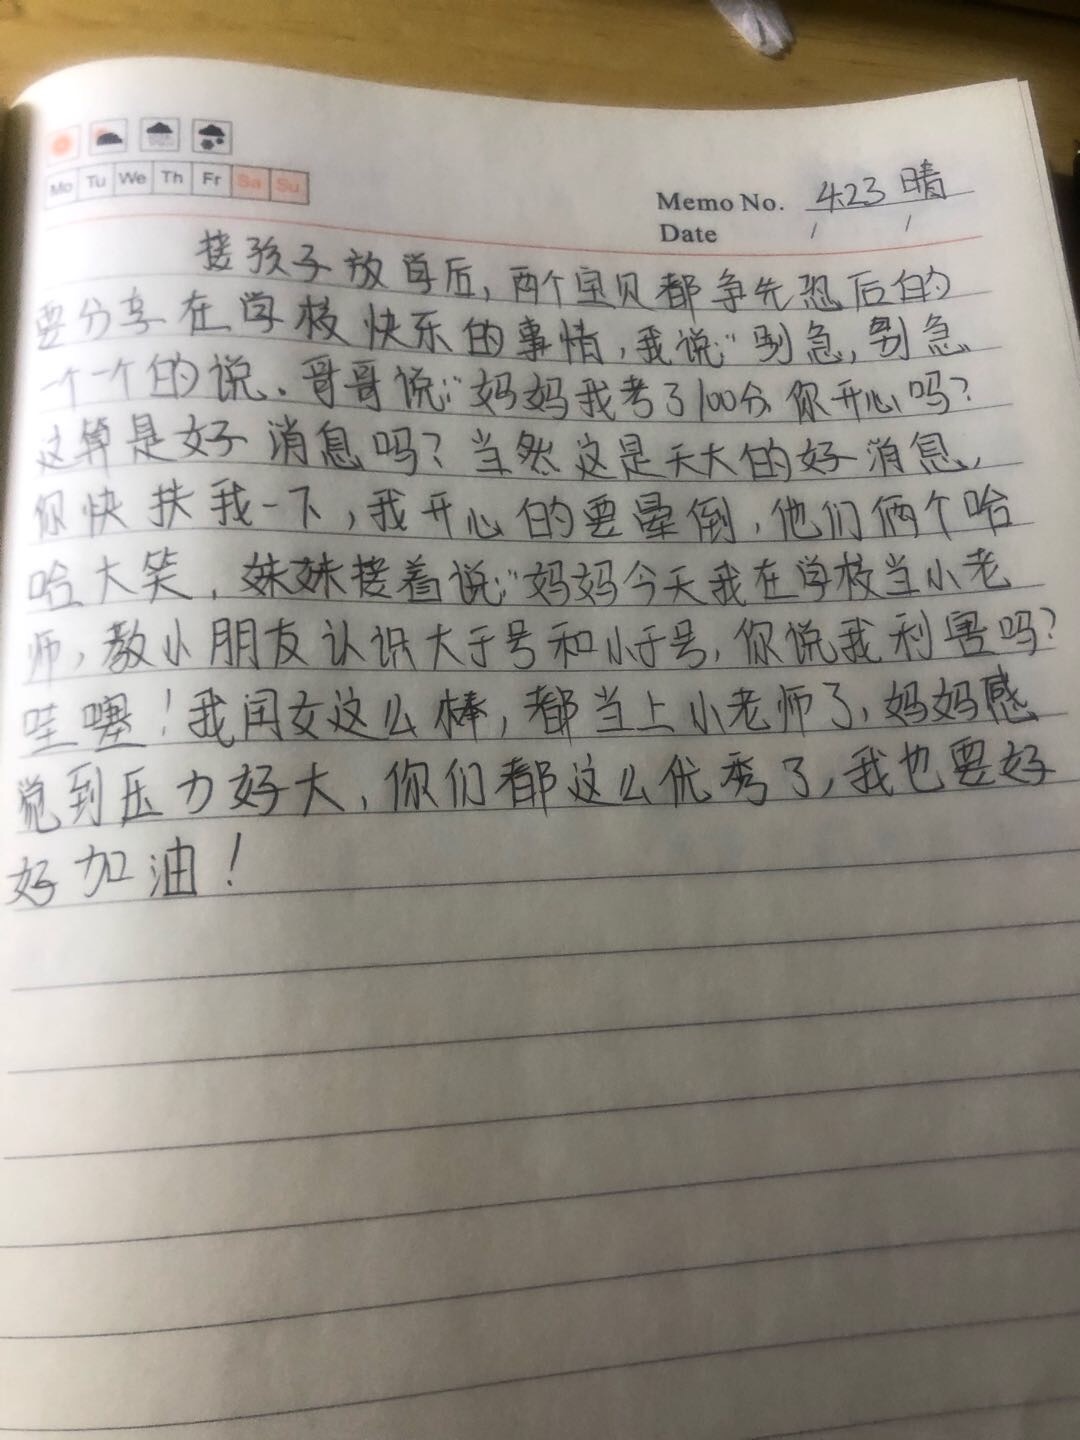 Mo Tu We Th Fr Sa Su
Memo No. 4.23 晴
Date / /
接孩子放学后,两个宝贝都争先恐后的
要分享在学校快乐的事情,我说:"别急,别急
一个一个的说。哥哥说:"妈妈我考了100分你开心吗?
这算是好消息吗?当然这是天大的好消息,
你快扶我一下,我开心的要晕倒,他们俩个哈
哈大笑,妹妹接着说:"妈妈今天我在学校当小老
师,教小朋友认识大于号和小于号,你说我利害吗?
哇噻!我闰女这么棒,都当上小老师了,妈妈感
觉到压力好大,你们都这么优秀了,我也要好
好加油!